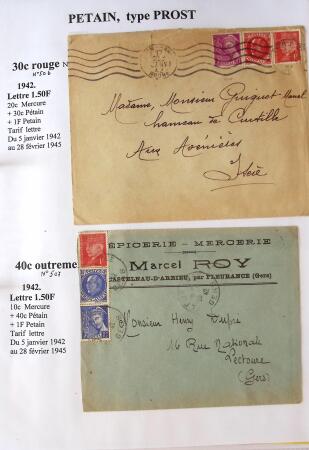 PETAIN, type PROST
30c rouge N
N° 506
1942.
Lettre 1.50F
20c Mercure
+ 30c Pétain
+ 1F Petain
Tarif lettre
Du 5 janvier 1942
au 28 février 1945
Madame, Monsieur
hameau de
Aux Avenières
Isère
40c outreme
N° 507
1942.
Lettre 1.50F
10c Mercure
+ 40c Pétain
+ 1F Petain
Tarif lettre
Du 5 janvier 1942
au 28 février 1945
EPICERIE - MERCERIE
Marcel ROY
CASTELNAU-D'ARBIEU, par FLEURANCE (Gers)
Monsieur Henry Dupre
16 Rue Nationale
Lectoure
(Gers)